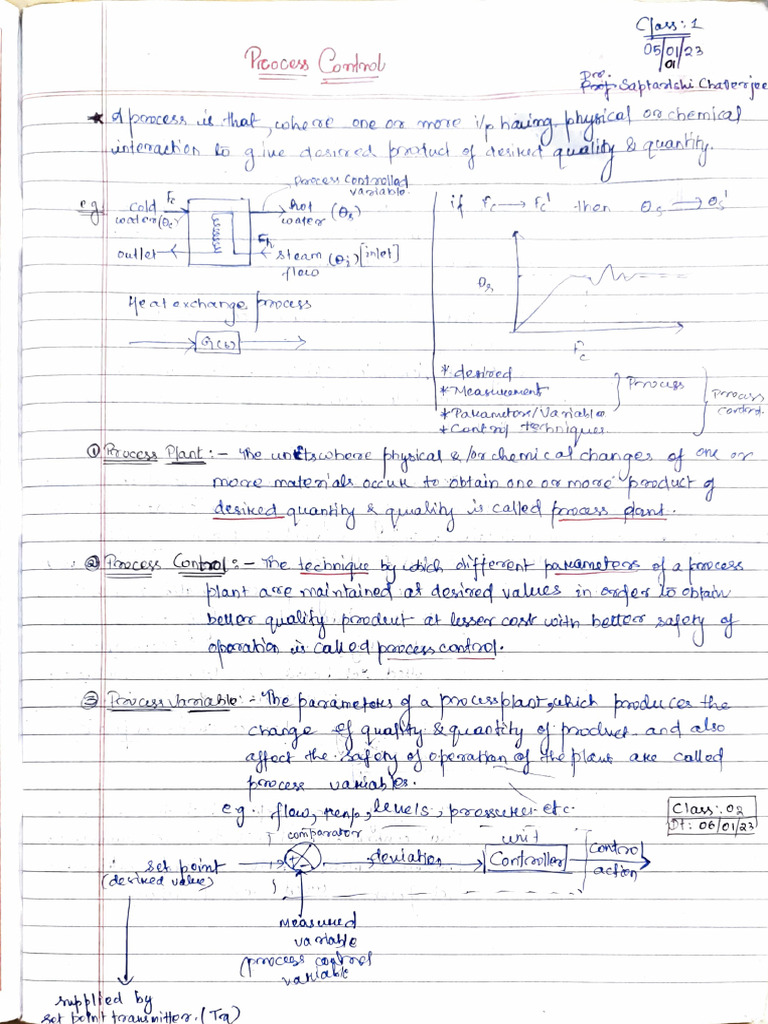 Class: 1
05/01/23
01
Process Control
Dr.
Prof. Saptarishi Chaterjee
* A process is that, where one or more i/p having physical or chemical
interaction to give desired product of desired quality & quantity.
process controlled
variable
e.g.
cold
water (θc)
Fc
hot
water (θs)
outlet
Fh
steam (θi) [inlet]
flow
Heat exchange process
G(s)
if Fc → Fc' then θs → θs'
θs
Fc
* desired
* Measurement
* Parameter/Variable
* Control techniques
Process
Process
control
① Process Plant :- The units where physical & /or chemical changes of one or
more materials occur to obtain one or more product of
desired quantity & quality is called process plant.
② Process Control :- The technique by which different parameters of a process
plant are maintained at desired values in order to obtain
better quality product at lesser cost with better safety of
operation is called process control.
③ Process Variable :- The parameters of a process plant, which produces the
change of quality & quantity of product and also
affect the safety of operation of the plant are called
process variables.
e.g. flow, temp, levels, pressure etc.
Class: 02
Dt: 06/01/23
comparator
unit
set point
(desired value)
+
-
deviation
Controller
control
action
Measured
variable
(process control
variable
supplied by
set point transmitter.